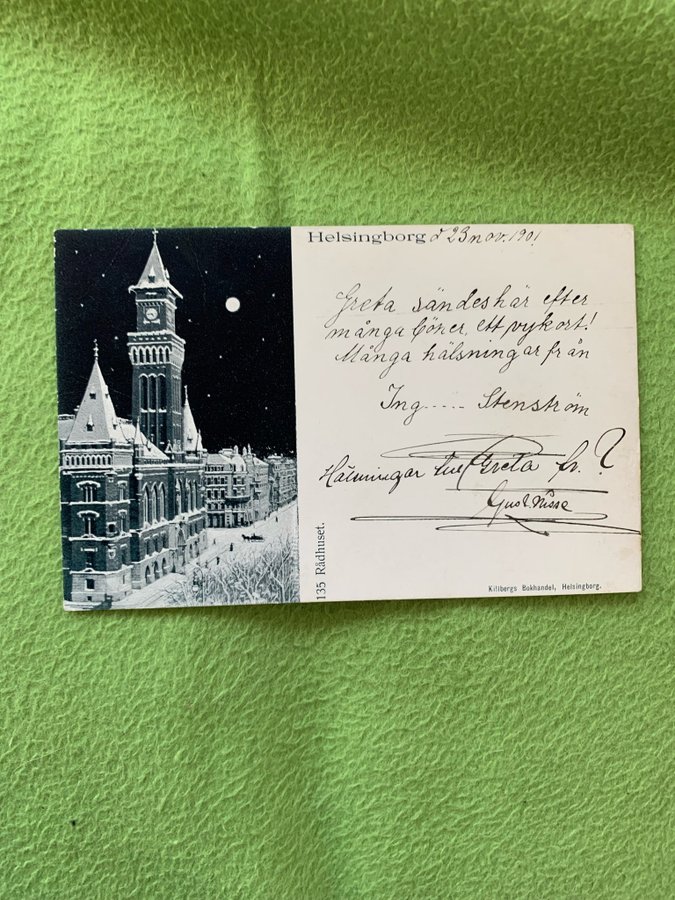 Helsingborg d 23 nov. 1901
Greta sändes här efter
många böner, ett vykort!
Många hälsningar från
Ing..... Stenström
Hälsningar till Greta fr. ?
135 Rådhuset.
Killbergs Bokhandel, Helsingborg.